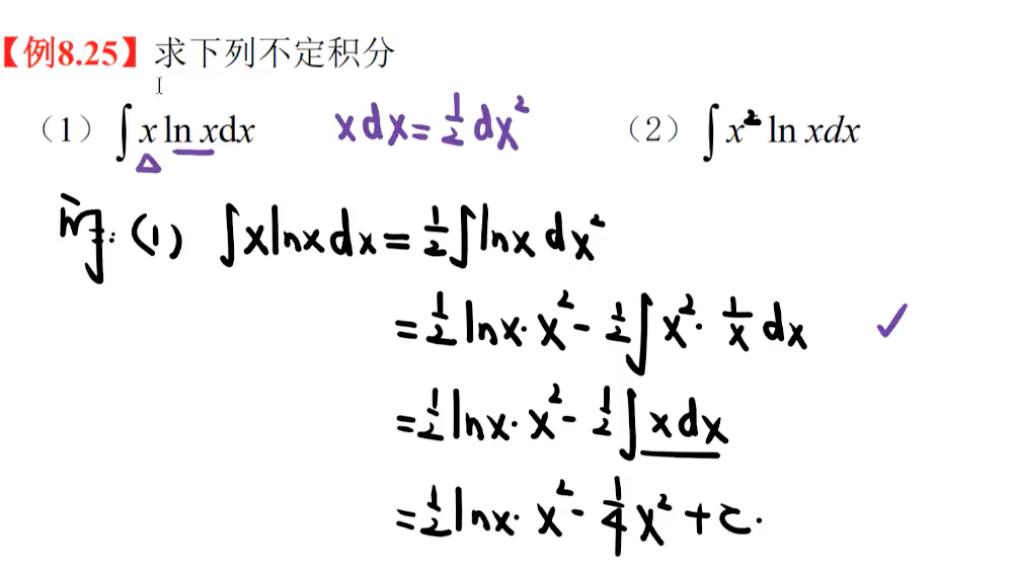 【例8.25】求下列不定积分
（1）∫x ln xdx　xdx=½dx²　（2）∫x² ln xdx
(1) ∫xlnxdx=½∫lnx dx²
=½lnx·x²-½∫x²·1/x dx
=½lnx·x²-½∫xdx
=½lnx·x²-¼x²+C.